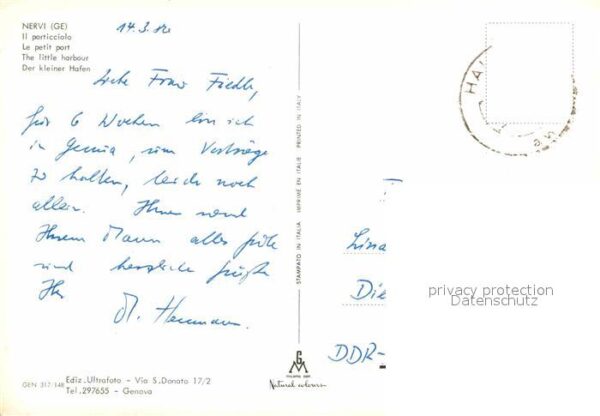 NERVI (GE)
Il porticciolo
Le petit port
The little harbour
Der kleiner Hafen
14.3.
Liebe Frau Fiedler,
für 6 Wochen bin ich
in Genua, um Vorträge
zu halten, leider noch
allein. Ihnen und
Ihrem Mann alles gute
und herzliche Grüße
Ihr
M. Hermann.
GEN 317/148
Ediz. Ultrafoto - Via S. Donato 17/2
Tel. 297655 - Genova
STAMPATO IN ITALIA IMPRIMÉ EN ITALIE PRINTED IN ITALY
GM
Natural colours
HAL
Lina
Die
DDR-
privacy protection
Datenschutz